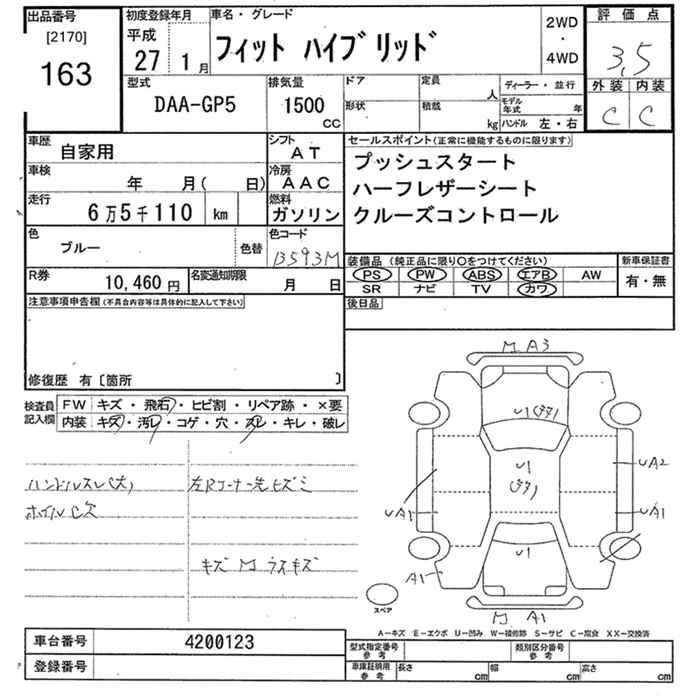 出品番号
[2170]
163
初度登録年月
平成
27 1月
車名・グレード
フィット ハイブリッド
2WD
・
4WD
評価点
3,5
外装 内装
C C
型式
DAA-GP5
排気量
1500
CC
ドア
形状
定員
人
積載
kg
ディーラー・並行
モデル年式 年
ハンドル 左・右
車歴
自家用
シフト
AT
車検
年 月( 日)
冷房
AAC
走行
6万5千110 km
燃料
ガソリン
色
ブルー
色替
色コード
B593M
R券
10,460円
名変通知期限
月 日
セールスポイント(正常に機能するものに限ります)
プッシュスタート
ハーフレザーシート
クルーズコントロール
装備品(純正品に限り○をつけてください)
PS PW ABS エアB AW
SR ナビ TV カワ
新車保証書
有・無
後日品
注意事項申告欄(不具合内容等は具体的に記入して下さい)
修復歴 有〔箇所 〕
検査員
記入欄
FW キズ・飛石・ヒビ割・リペア跡・×要
内装 キズ・汚レ・コゲ・穴・スレ・キレ・破レ
ハンドルスレ(大)
ホイルCズ
左Rコーナー先ヒズミ
キズ M ラスキズ
M A3
U1
U1
U1
UA2
UA1
UA1
A1
M A1
スペア
A-キズ E-エクボ U-凹み W-補修跡 S-サビ C-腐食 XX-交換済
車台番号
4200123
登録番号
型式指定番号
参考
類別区分番号
参考
車庫証明用
参考
長さ cm
幅 cm
高さ cm